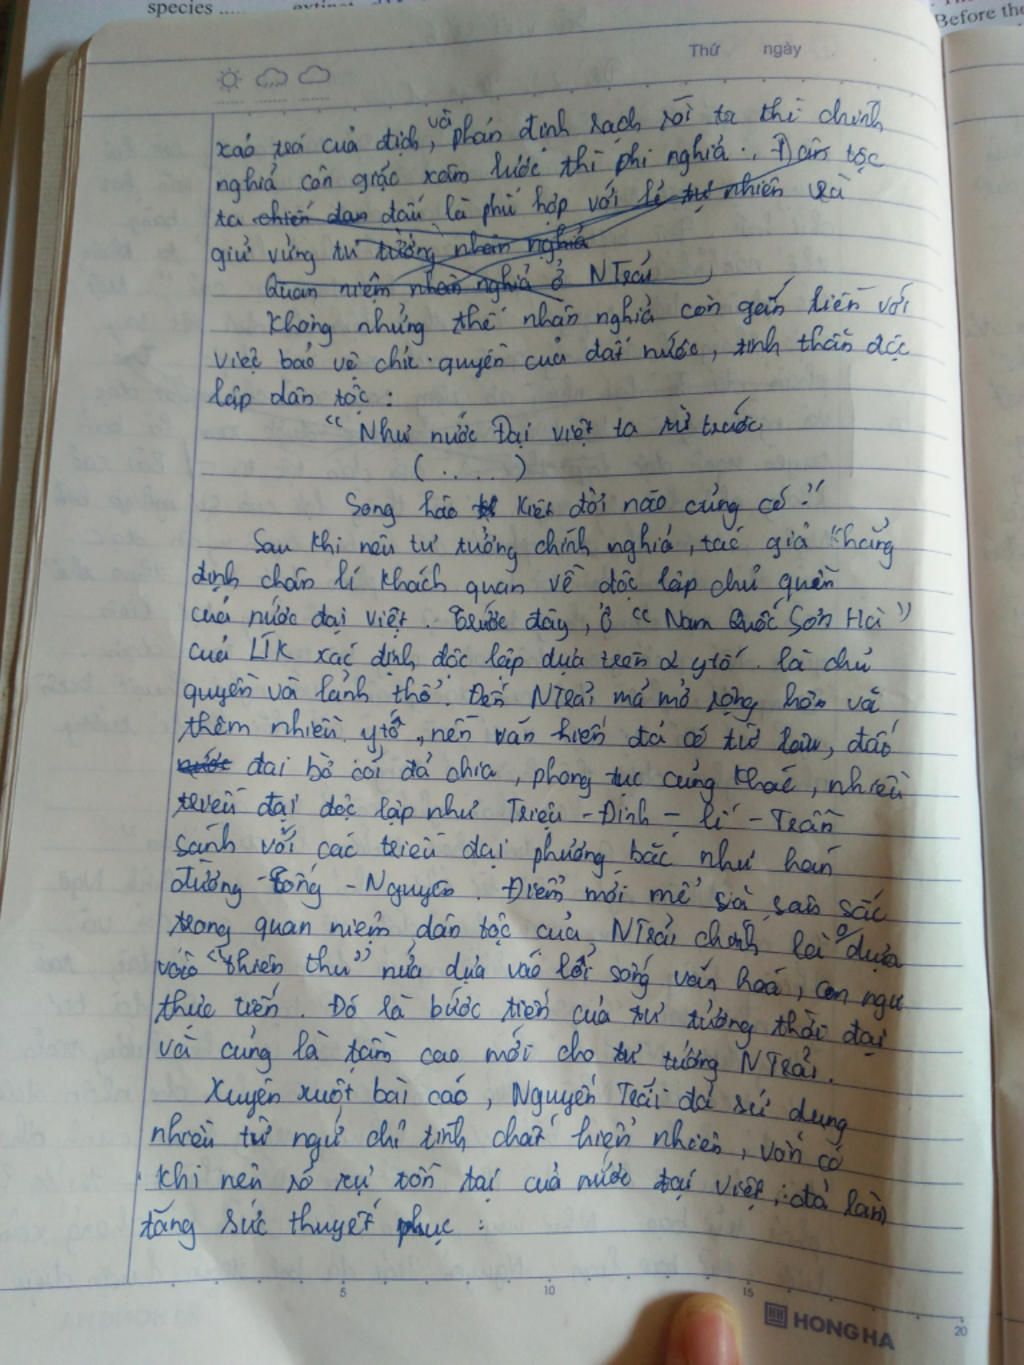 species ........ extinct
Before the
Thứ ngày
xảo trá của địch, và phân định rạch ròi ta thì chính
nghĩa còn giặc xâm lược thì phi nghĩa. Dân tộc
ta chiến đấu là phù hợp với lí tự nhiên và
giữ vững tư tưởng nhân nghĩa
Quan niệm nhân nghĩa ở NTrãi
Không những thế nhân nghĩa còn gắn liền với
việc bảo vệ chủ quyền của đất nước, tinh thần độc
lập dân tộc :
" Như nước Đại việt ta từ trước
( . . . . )
Song hào kiệt đời nào cũng có "
Sau khi nêu tư tưởng chính nghĩa, tác giả khẳng
định chân lí khách quan về độc lập chủ quền
của nước đại việt. Trước đây, ở " Nam Quốc Sơn Hà "
của LTK xác định độc lập dựa trên 2 ytố là chủ
quyền và lãnh thổ. Đến NTrãi mở rộng hơn và
thêm nhiều ytố, nền văn hiến đã có từ lâu, đất
nước đai bờ cõi đã chia, phong tục cũng khác, nhiều
triều đại độc lập như Triệu - Đinh - Lí - Trần
sánh với các triều đại phương bắc như hán
đường - Tống - Nguyên. Điểm mới mẻ và sâu sắc
trong quan niệm dân tộc của NTrãi chính là dựa
vào "thiên thư" nữa dựa vào lối sống văn hoá, con ngư
thực tiễn. Đó là bước tiến của tư tưởng thời đại
và cũng là tầm cao mới cho tư tưởng NTrãi.
Xuyên xuốt bài cáo, Nguyễn Trãi đã sử dụng
nhiều từ ngữ chỉ tính chất hiển nhiên, vốn có
khi nên rõ sự tồn tại của nước đại việt, đã làm
tăng sức thuyết phục :
5 10 15 20
HONG HA